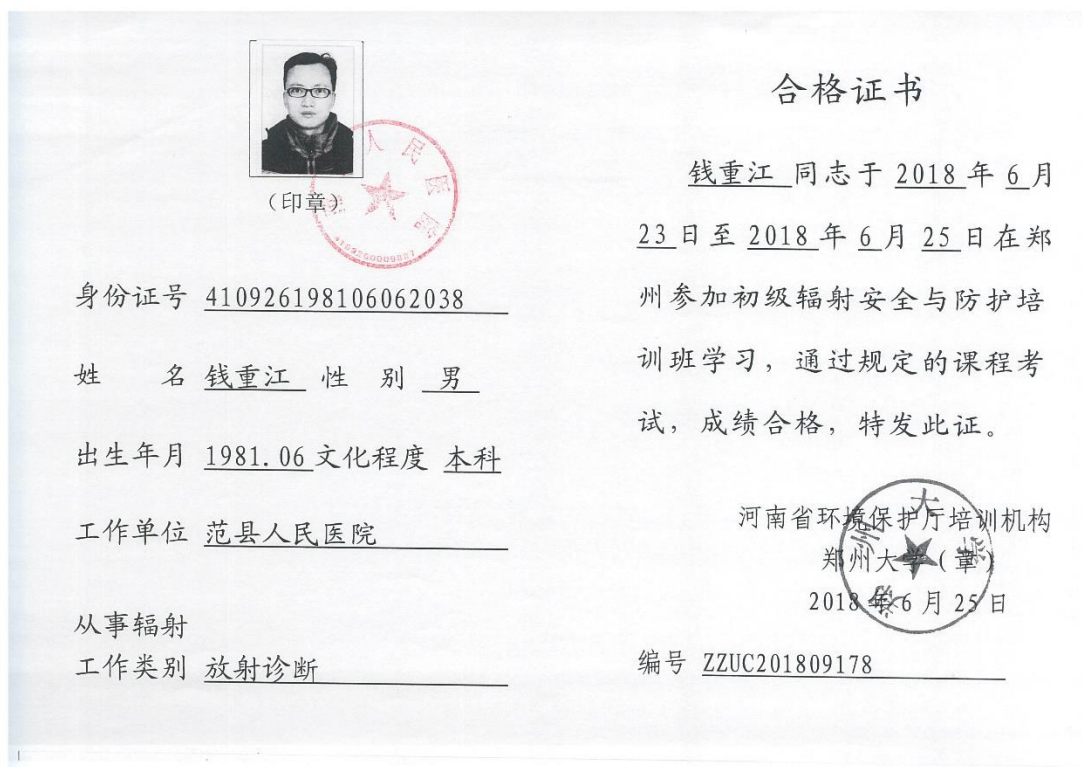 人民医院
4109260009827
（印章）
身份证号 410926198106062038
姓 名 钱重江 性 别 男
出生年月 1981.06 文化程度 本科
工作单位 范县人民医院
从事辐射
工作类别 放射诊断
合格证书
钱重江 同志于 2018 年 6 月
23 日至 2018 年 6 月 25 日在郑
州参加初级辐射安全与防护培
训班学习，通过规定的课程考
试，成绩合格，特发此证。
河南省环境保护厅培训机构
郑州大学（章）
2018 年 6 月 25 日
郑州大学
编号 ZZUC201809178